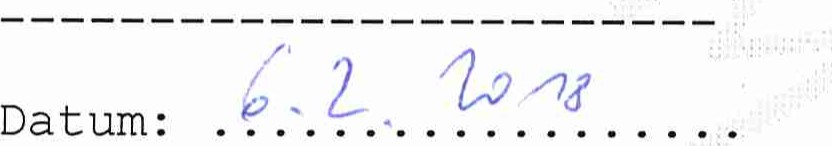 Datum: 6.2. 2018